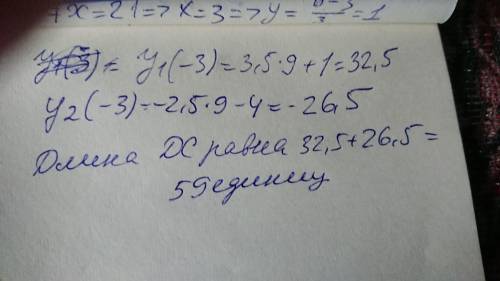 7x=21=>x=3=>y=\frac{6-3}{3}=1
y₁(-3)=3,5·9+1=32,5
y₂(-3)=-2,5·9-4=-26,5
Длина DC равна 32,5+26,5=
59единиц